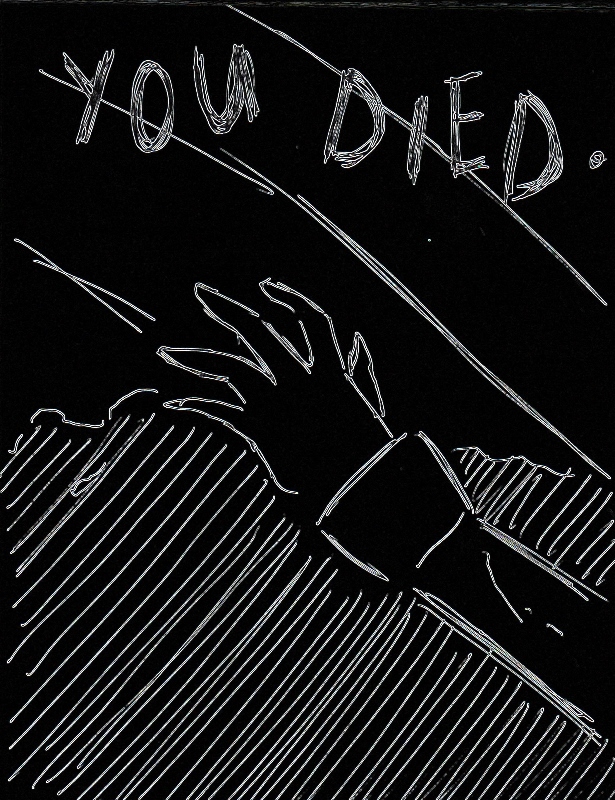 YOU DIED.